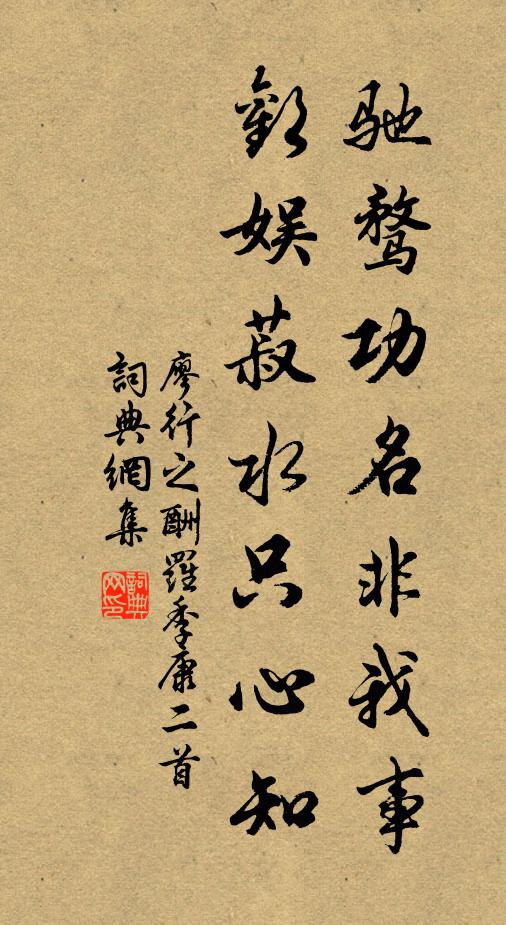 驰鹜功名非我事
歡娱菽水只心知
廖行之酬羅季康二首
詞典網集
詞典网印